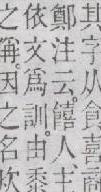 其字从食喜
鄭注云。饎人、主
依文爲訓。由黍
之稱。因之名炊